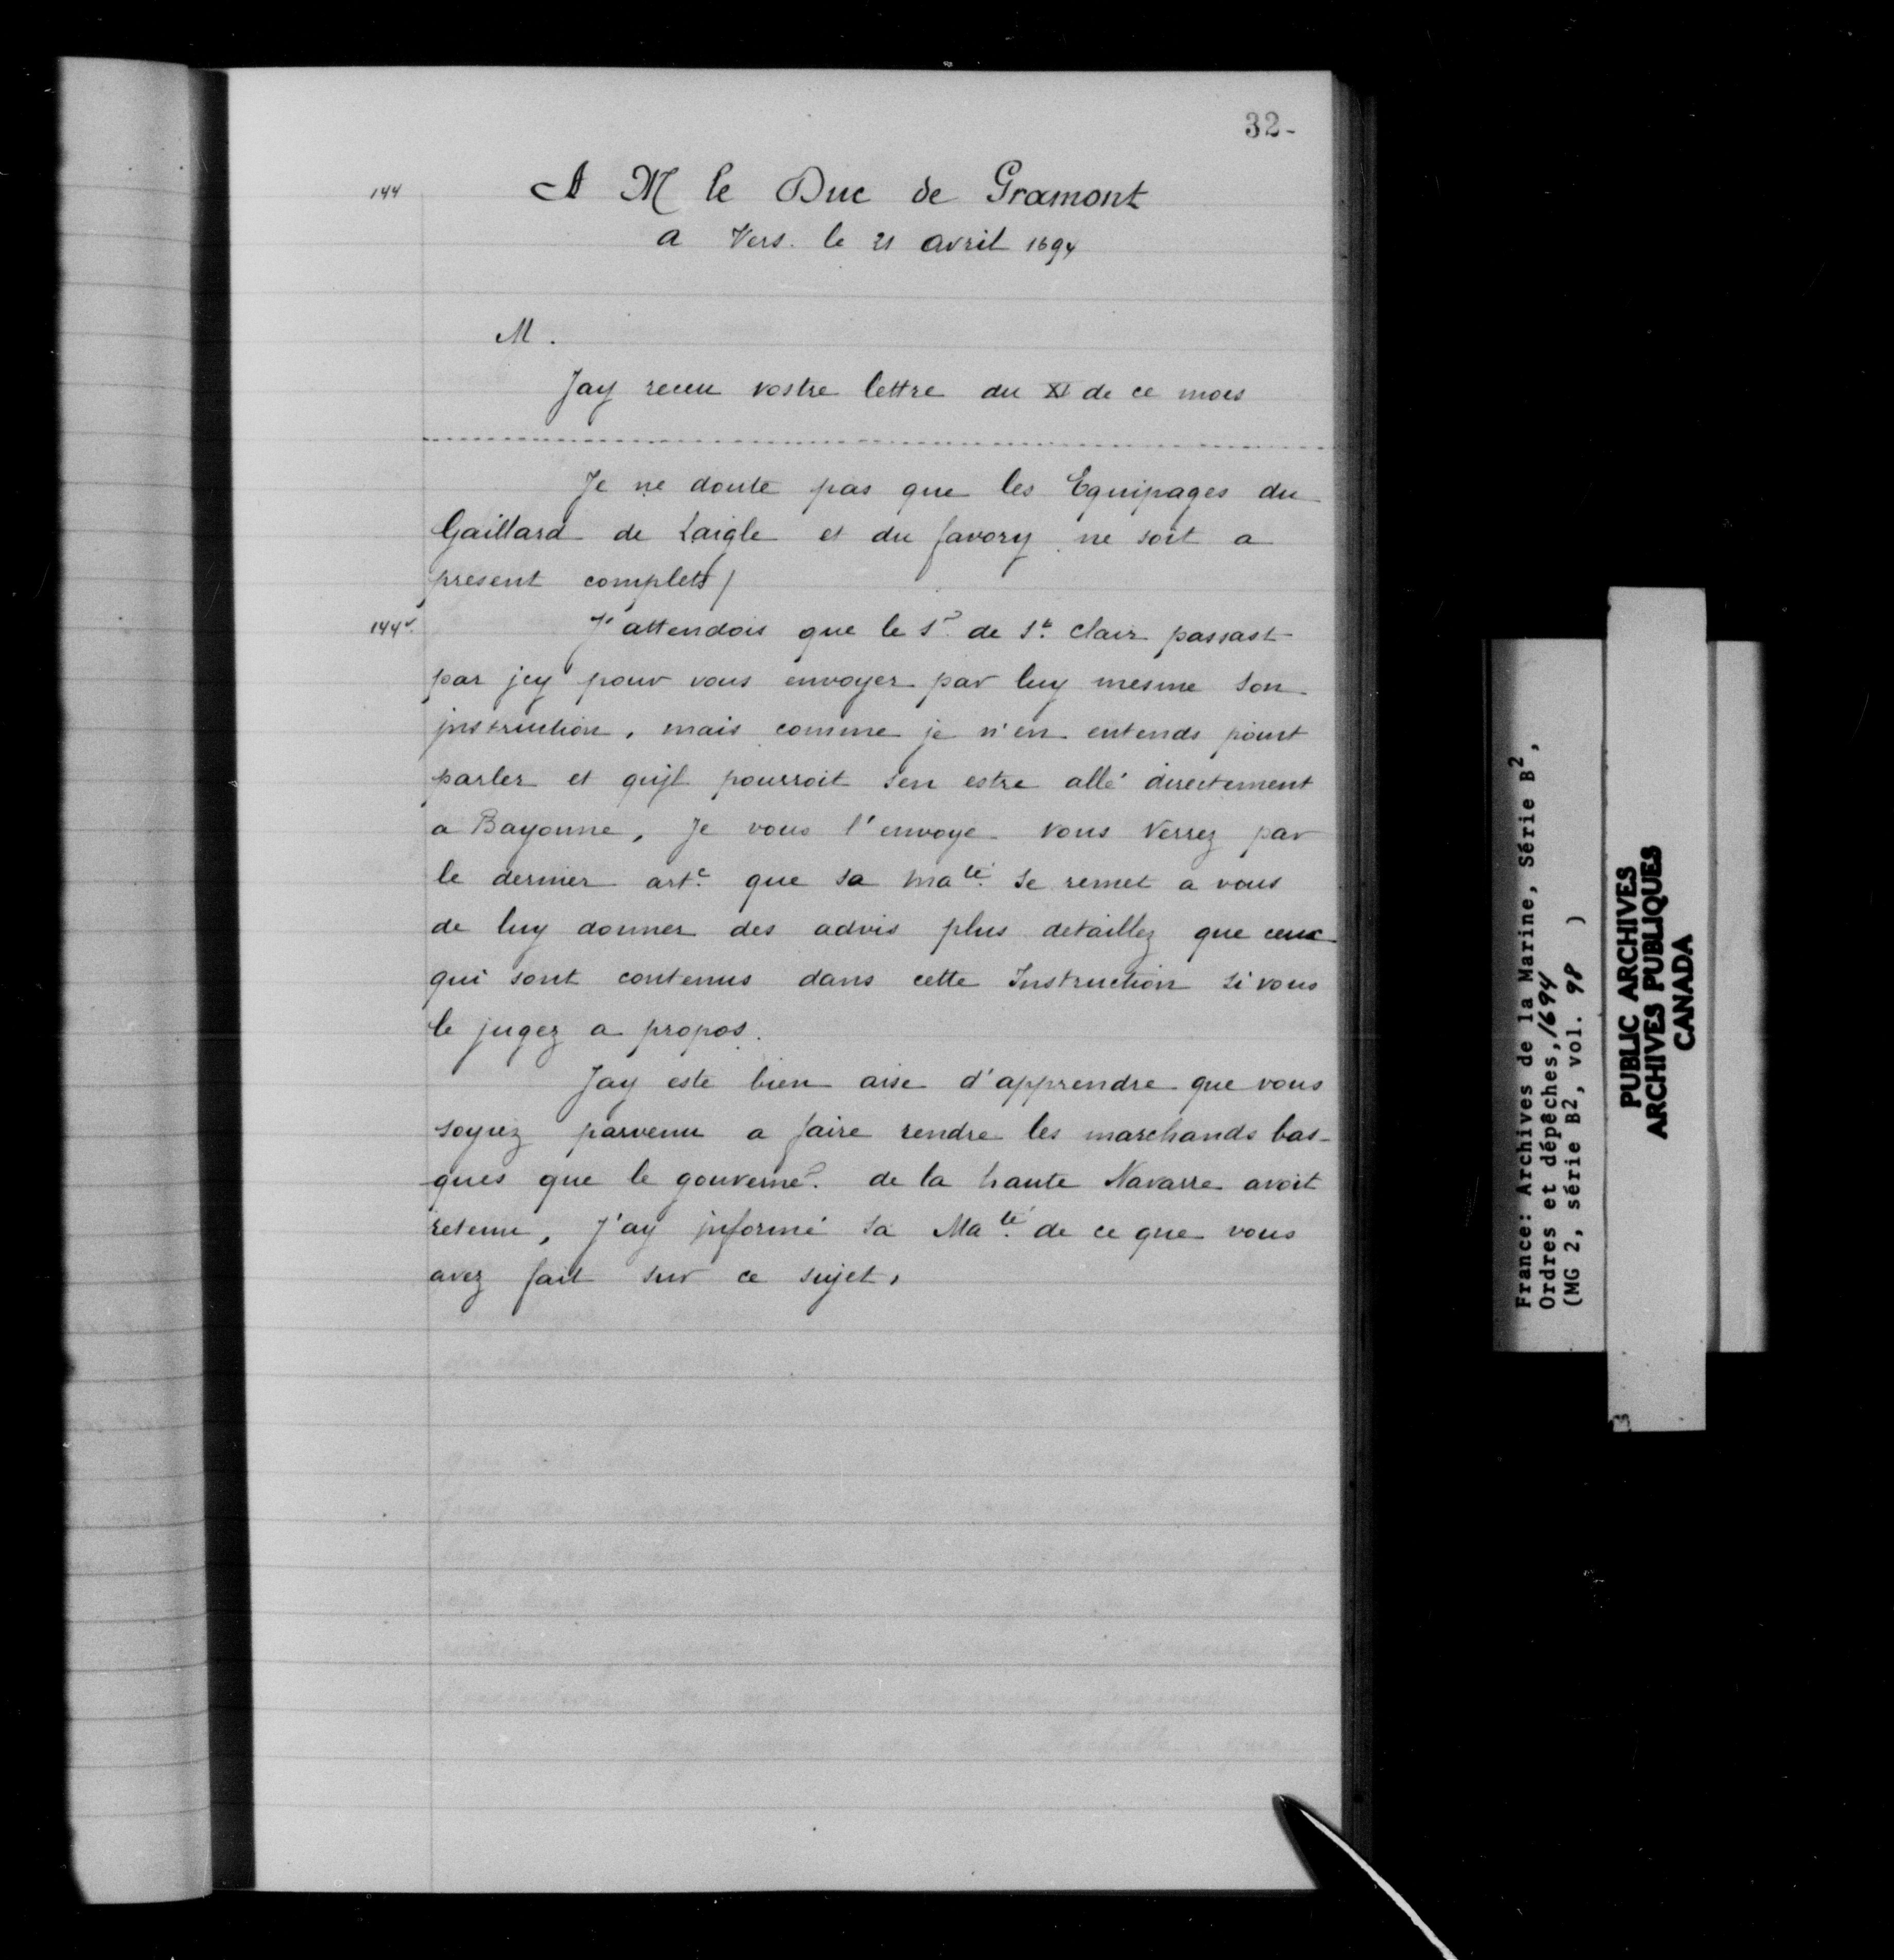 32-
144
A M le Duc de Gramont
a Vers. le 21 avril 1694
M.
Jay receu vostre lettre du XI de ce mois
Je ne doute pas que les Equipages du
Gaillard de Laigle et du favory ne soit a
present complets/
144v.
J'attendois que le Sr. de St. Clair passast
par jcy pour vous envoyer par luy mesme son
jnstruction, mais comme je n'en entends point
parler et qu'jl pourroit sen estre allé directement
a Bayonne, Je vous l'envoye vous Verrez par
le dernier arte. que sa maté. se remet a vous
de luy donner des advis plus detaillez que ceux
qui sont contenus dans cette Instruction si vous
le jugez a propos.
Jay este bien aise d'apprendre que vous
soyiez parvenu a faire rendre les marchands bas-
ques que le gouverner. de la haute Navarre avoit
retenu, J'ay jnformé sa Maté. de ce que vous
avez fait sur ce sujet,
France: Archives de la Marine, Série B2,
Ordres et dépêches, 1694
(MG 2, série B2, vol. 98 )
PUBLIC ARCHIVES
ARCHIVES PUBLIQUES
CANADA
3